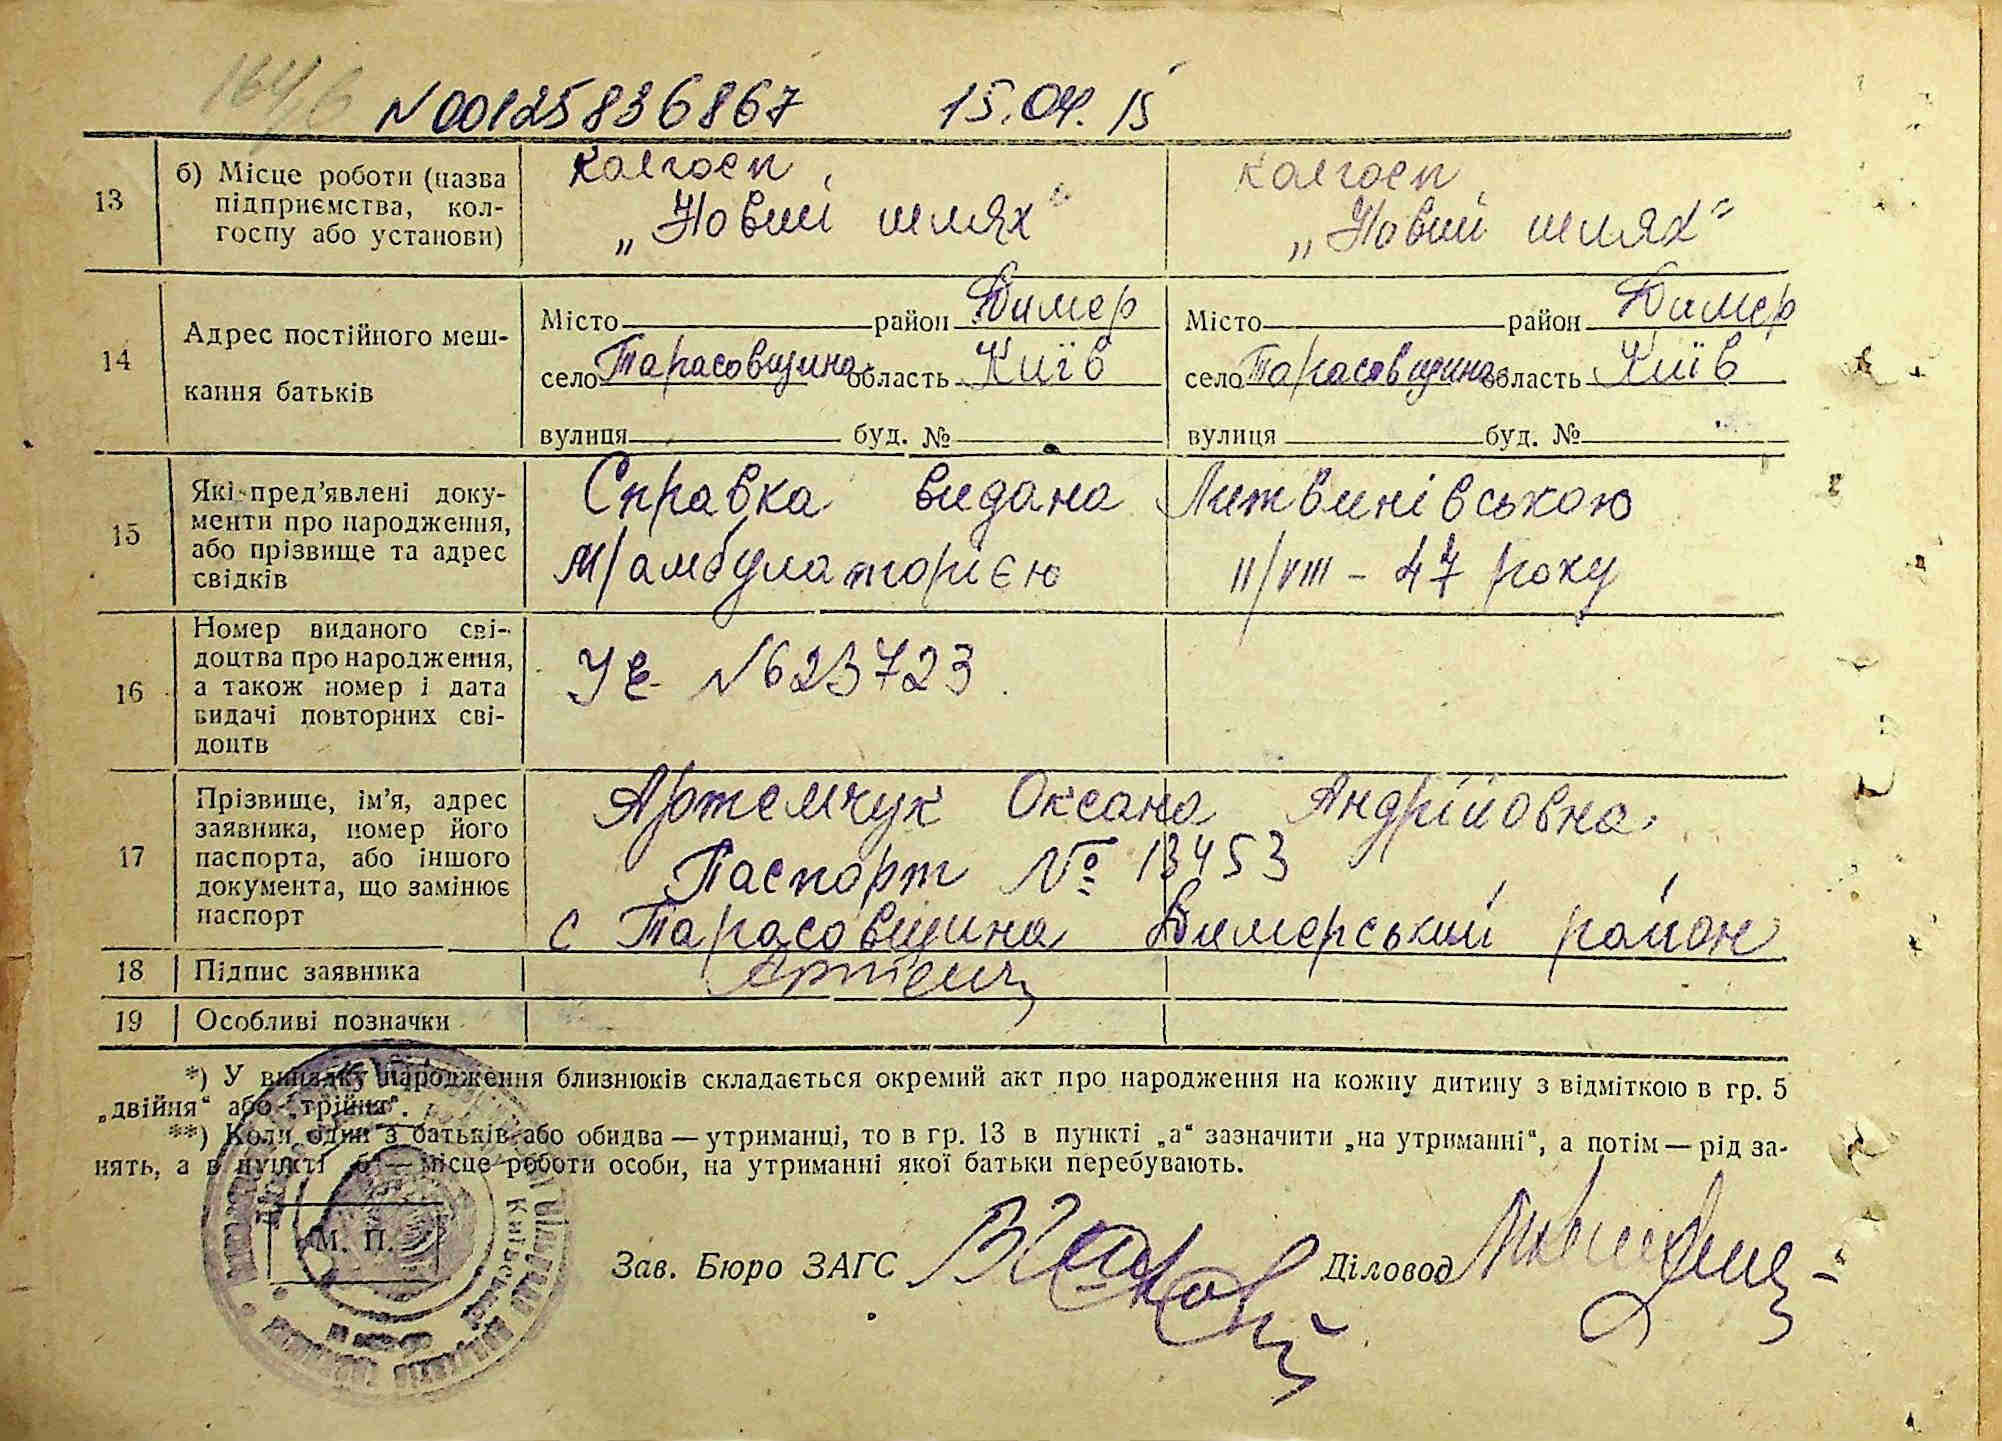 164/6
N00125836867 15.04.15
13
б) Місце роботи (назва
підприємства, кол-
госпу або установи)
колгосп
„Новий шлях“
колгосп
„Новий шлях“
14
Адрес постійного меш-
кання батьків
Місто район Димер
село Тарасовщина область Київ
вулиця буд. №
Місто район Димер
село Тарасовщина область Київ
вулиця буд. №
15
Які пред’явлені доку-
менти про народження,
або прізвище та адрес
свідків
Справка видана Литвинівською
М/амбулаторією 11/VIII - 47 року
16
Номер виданого сві-
доцтва про народження,
а також номер і дата
видачі повторних сві-
доцтв
N623723
17
Прізвище, ім’я, адрес
заявника, номер його
паспорта, або іншого
документа, що замінює
паспорт
Артемчук Оксана Андрійовна
Паспорт № 13453
с Тарасовщина Димерський район
18 Підпис заявника
19 Особливі позначки
*) У випадку народження близнюків складається окремий акт про народження на кожну дитину з відміткою в гр. 5
„двійня“ або „трійня“.
**) Коли один з батьків або обидва — утриманці, то в гр. 13 в пункті „а“ зазначити „на утриманні“, а потім — рід за-
нять, а в пункті „б“ — місце роботи особи, на утриманні якої батьки перебувають.
М. П.
Зав. Бюро ЗАГС
Діловод